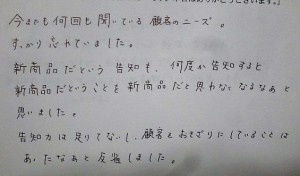 今までも何回も聞いている顧客のニーズ。
すっかり忘れていました。
新商品だという告知も、何度か告知すると
新商品だということを新商品だと思わなくなるなあと
思いました。
告知力は足りてないし、顧客をおきざりにしていることは
あったなぁと反省しました。